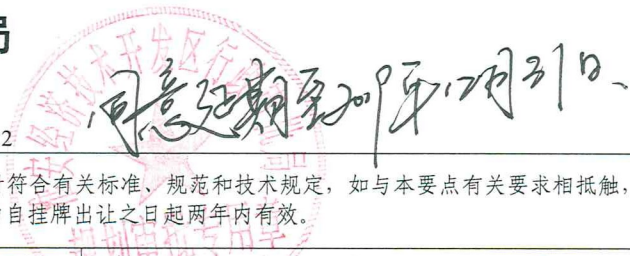 局
同意延期至2019年12月31日、
2
符合有关标准、规范和技术规定，如与本要点有关要求相抵触，
自挂牌出让之日起两年内有效。
经济技术开发区行
规划审批专用章